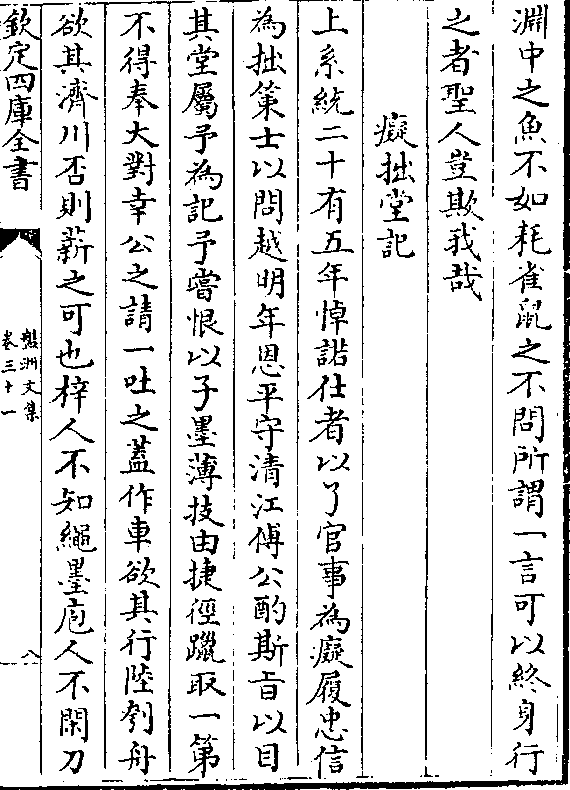 淵中之魚不如耗雀鼠之不問所謂一言可以終身行
之者聖人豈欺我哉
癡拙堂記
上系統二十有五年悼諾仕者以了官事為癡履忠信
為拙策士以問越明年恩平守清江傅公酌斯旨以目
其堂屬予為記予嘗恨以子墨薄技由捷徑躐取一第
不得奉大對幸公之請一吐之蓋作車欲其行陸刳舟
欲其濟川否則薪之可也梓人不知繩墨庖人不閑刀
欽定四庫全書
盤洲文集
卷三十一
八